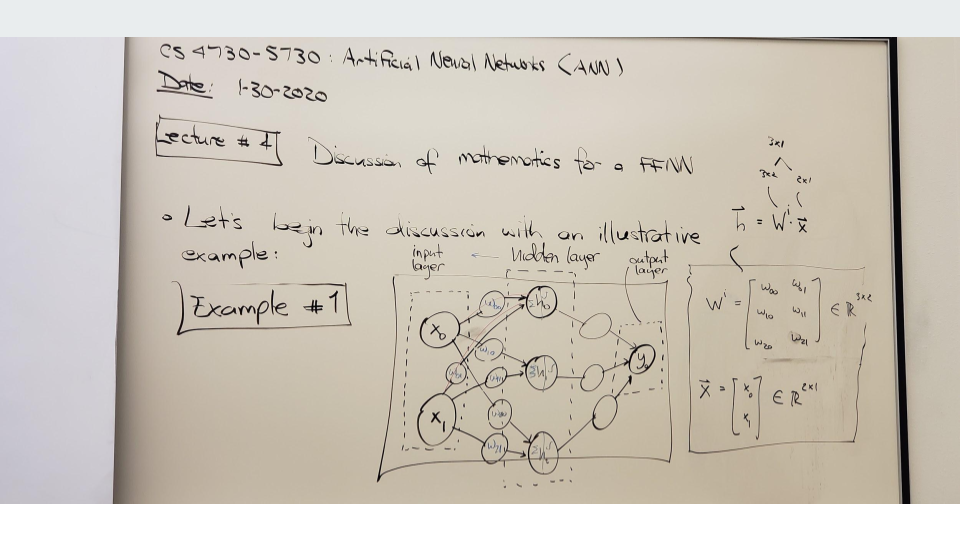 CS 4730-5730: Artificial Neural Networks (ANN)
Date: 1-30-2020
Lecture # 4
Discussion of mathematics for a FFNN
• Let's begin the discussion with an illustrative
example:
Example #1
input
layer
← hidden layer
output
layer
3x1
3x2 2x1
h = Wⁱ · x
x₀
x₁
w₀₀
w₁₀
w₁₁
w₂₁
y₀
Wⁱ = [ w₀₀ w₀₁
w₁₀ w₁₁
w₂₀ w₂₁ ] ∈ ℝ³ˣ²
x = [ x₀
x₁ ] ∈ ℝ²ˣ¹